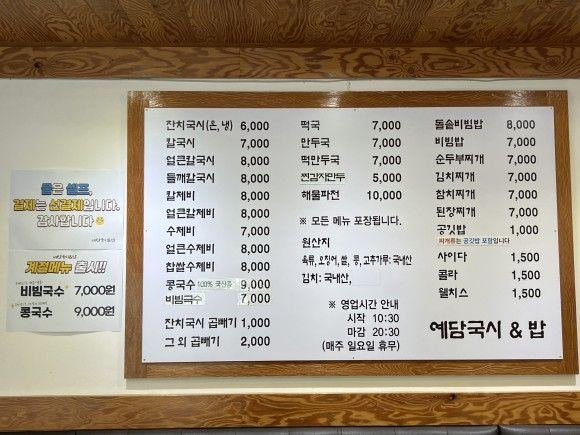 물은 셀프,
결제는 선결제입니다.
감사합니다
계절메뉴 출시!!
비빔국수 7,000원
콩국수 9,000원
잔치국시(온, 냉) 6,000
칼국시 7,000
얼큰칼국시 8,000
들깨칼국시 8,000
칼제비 8,000
얼큰칼제비 8,000
수제비 7,000
얼큰수제비 8,000
찹쌀수제비 8,000
콩국수 100% 국산콩 9,000
비빔국수 7,000
잔치국시 곱빼기 1,000
그 외 곱빼기 2,000
떡국 7,000
만두국 7,000
떡만두국 7,000
찐감자만두 5,000
해물파전 10,000
※ 모든 메뉴 포장됩니다.
원산지
육류, 오징어, 쌀, 콩, 고추가루: 국내산
김치: 국내산,
※ 영업시간 안내
시작 10:30
마감 20:30
(매주 일요일 휴무)
돌솥비빔밥 8,000
비빔밥 7,000
순두부찌개 7,000
김치찌개 7,000
참치찌개 7,000
된장찌개 7,000
공깃밥 1,000
찌개류는 공깃밥 포함입니다
사이다 1,500
콜라 1,500
웰치스 1,500
예담국시 & 밥